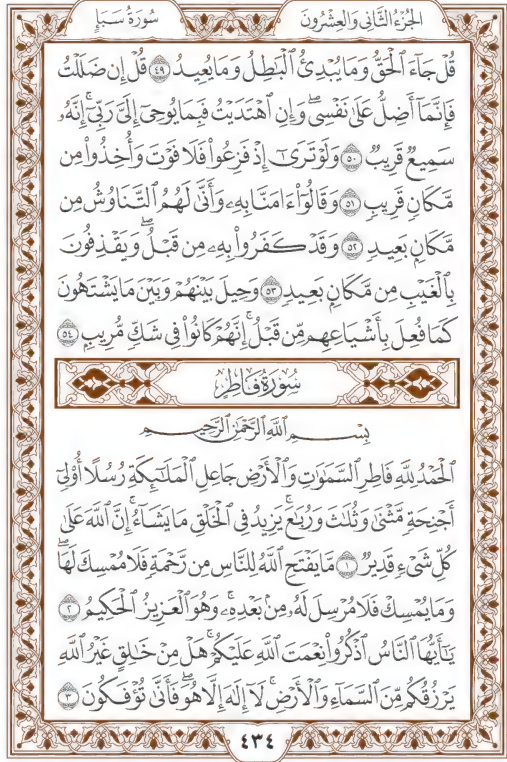 الجُزْءُ الثَّانِي وَالعِشْرُونَ
سُورَةُ سَبَإٍ
قُلۡ جَآءَ ٱلۡحَقُّ وَمَا يُبۡدِئُ ٱلۡبَٰطِلُ وَمَا يُعِيدُ ٤٩ قُلۡ إِن ضَلَلۡتُ
فَإِنَّمَآ أَضِلُّ عَلَىٰ نَفۡسِيۖ وَإِنِ ٱهۡتَدَيۡتُ فَبِمَا يُوحِيٓ إِلَيَّ رَبِّيٓۚ إِنَّهُۥ
سَمِيعٞ قَرِيبٞ ٥٠ وَلَوۡ تَرَىٰٓ إِذۡ فَزِعُواْ فَلَا فَوۡتَ وَأُخِذُواْ مِن
مَّكَانٖ قَرِيبٖ ٥١ وَقَالُوٓاْ ءَامَنَّا بِهِۦ وَأَنَّىٰ لَهُمُ ٱلتَّنَاوُشُ مِن
مَّكَانِۭ بَعِيدٖ ٥٢ وَقَدۡ كَفَرُواْ بِهِۦ مِن قَبۡلُۖ وَيَقۡذِفُونَ
بِٱلۡغَيۡبِ مِن مَّكَانِۭ بَعِيدٖ ٥٣ وَحِيلَ بَيۡنَهُمۡ وَبَيۡنَ مَا يَشۡتَهُونَ
كَمَا فُعِلَ بِأَشۡيَاعِهِم مِّن قَبۡلُۚ إِنَّهُمۡ كَانُواْ فِي شَكّٖ مُّرِيبِۭ ٥٤
سُورَةُ فَاطِرٍ
بِسۡمِ ٱللَّهِ ٱلرَّحۡمَٰنِ ٱلرَّحِيمِ
ٱلۡحَمۡدُ لِلَّهِ فَاطِرِ ٱلسَّمَٰوَٰتِ وَٱلۡأَرۡضِ جَاعِلِ ٱلۡمَلَٰٓئِكَةِ رُسُلًا أُوْلِيٓ
أَجۡنِحَةٖ مَّثۡنَىٰ وَثُلَٰثَ وَرُبَٰعَۚ يَزِيدُ فِي ٱلۡخَلۡقِ مَا يَشَآءُۚ إِنَّ ٱللَّهَ عَلَىٰ
كُلِّ شَيۡءٖ قَدِيرٞ ١ مَّا يَفۡتَحِ ٱللَّهُ لِلنَّاسِ مِن رَّحۡمَةٖ فَلَا مُمۡسِكَ لَهَاۖ
وَمَا يُمۡسِكۡ فَلَا مُرۡسِلَ لَهُۥ مِنۢ بَعۡدِهِۦۚ وَهُوَ ٱلۡعَزِيزُ ٱلۡحَكِيمُ ٢
يَٰٓأَيُّهَا ٱلنَّاسُ ٱذۡكُرُواْ نِعۡمَتَ ٱللَّهِ عَلَيۡكُمۡۚ هَلۡ مِنۡ خَٰلِقٍ غَيۡرُ ٱللَّهِ
يَرۡزُقُكُم مِّنَ ٱلسَّمَآءِ وَٱلۡأَرۡضِۚ لَآ إِلَٰهَ إِلَّا هُوَۖ فَأَنَّىٰ تُؤۡفَكُونَ ٣
٤٣٤